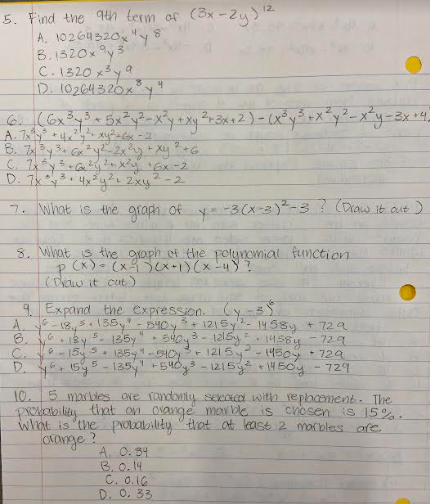 5. Find the 9th term of (3x-2y)¹²
A. 10264320x⁴y⁸
B. 1320x⁹y³
C. 1320x³y⁹
D. 10264320x⁸y⁴
6. (6x³y³+5x²y²-x²y+xy²+3x+2)-(x³y³+x²y²-x²y-3x+4)
A. 7x³y³+4x²y²+xy²+6x-2
B. 7x³y³+6x²y²-2x²y+xy²+6
D. 7x³y³+4x²y²+2xy²-2
7. What is the graph of y=-3(x-3)²-3? (Draw it out)
8. What is the graph of the polynomial function
p(x)=(x-1)(x+1)(x-4)?
(Draw it out)
9. Expand the expression. (y-3)⁶
A. y⁶-18y⁵+135y⁴-540y³+1215y²-1458y+729
B. y⁶+18y⁵-135y⁴+540y³-1215y²+1458y-729
C. y⁶-15y⁵+135y⁴-540y³+1215y²-1450y+729
D. y⁶+15y⁵-135y⁴+540y³-1215y²+1450y-729
10. 5 marbles are randomly selected with replacement. The
probability that an orange marble is chosen is 15%.
What is the probability that at least 2 marbles are
orange?
A. 0.34
B. 0.14
C. 0.16
D. 0.33